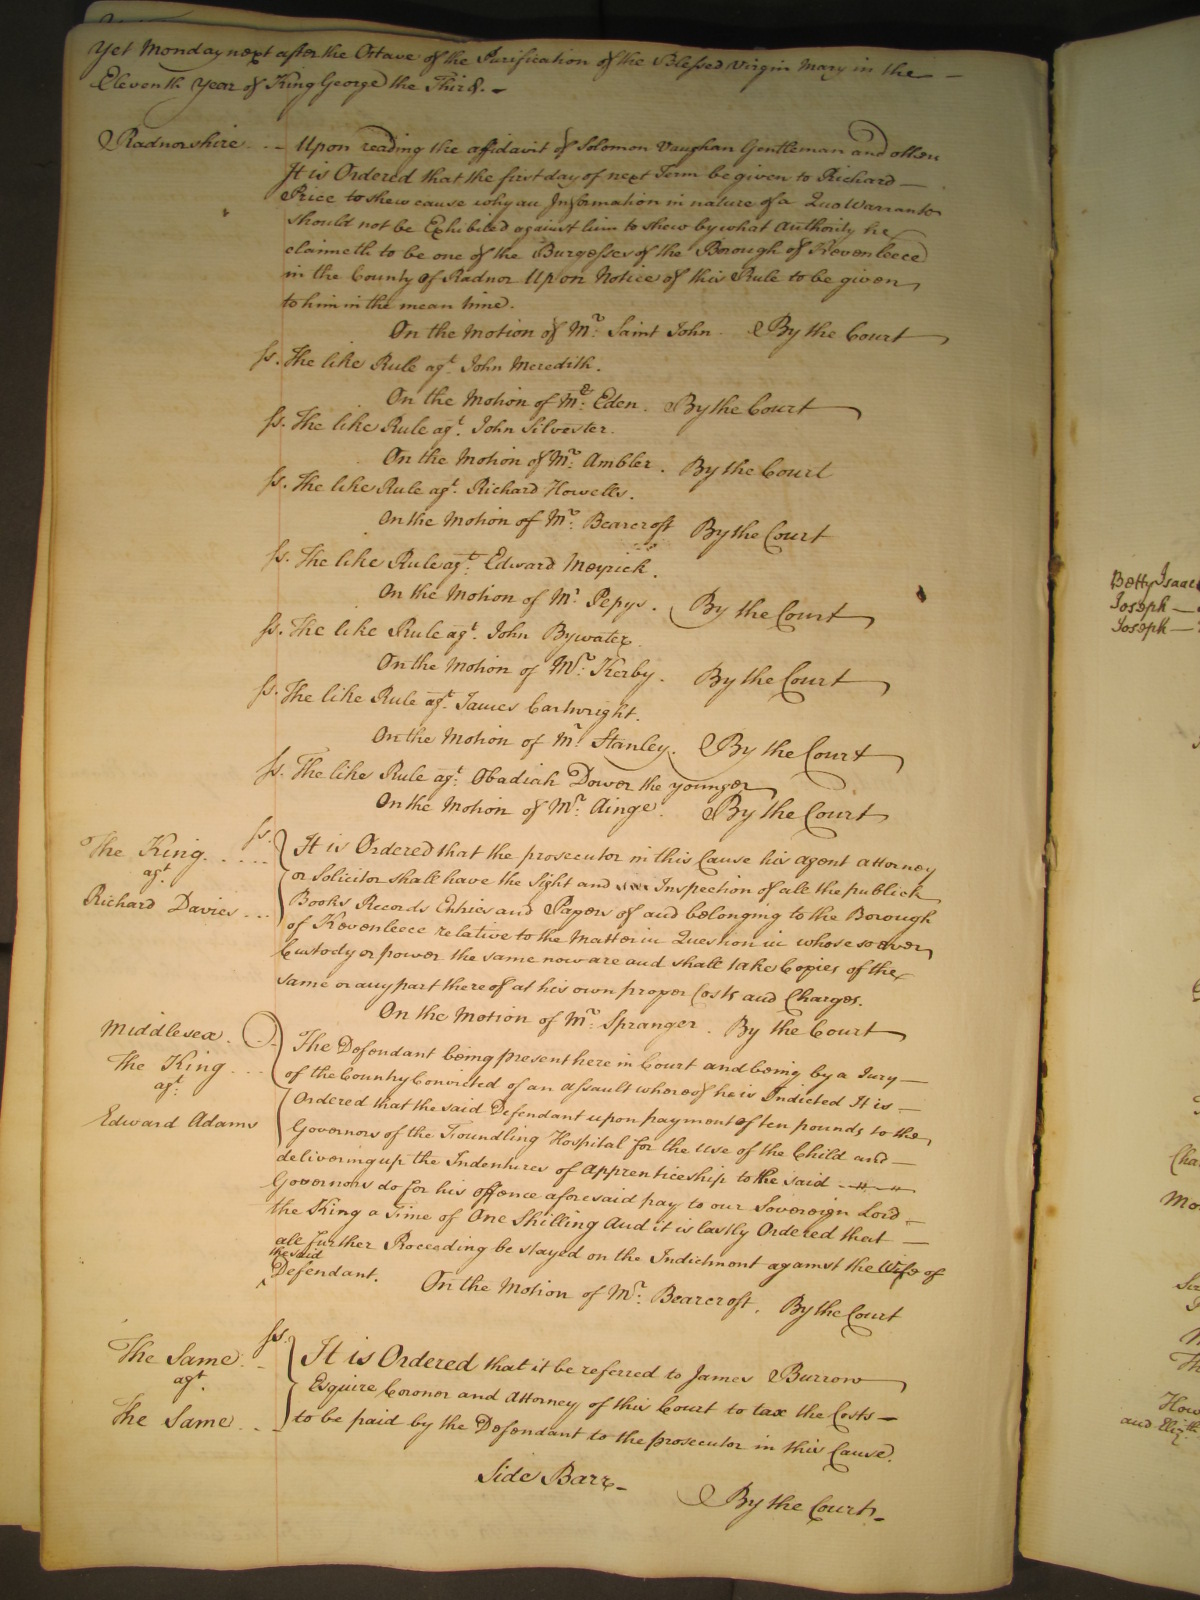 Yet Monday next after the Octave of the Purification of the Blessed Virgin Mary in the
Eleventh Year of King George the Third.
Radnorshire Upon reading the affidavit of Solomon Vaughan Gentleman and others
It is Ordered that the first day of next Term be given to Richard
Price to shew cause why an Information in nature of a Quo Warranto
should not be Exhibited against him to shew by what Authority he
claimeth to be one of the Burgesses of the Borough of Kevenleece
in the County of Radnor Upon Notice of this Rule to be given
to him in the mean time.
On the Motion of Mr. Saint John. By the Court
ss. The like Rule agt. John Meredith.
On the Motion of Mr. Eden. By the Court
ss. The like Rule agt. John Silvester.
On the Motion of Mr. Ambler. By the Court
ss. The like Rule agt. Richard Howells.
On the Motion of Mr. Bearcroft By the Court
ss. The like Rule agt. Edward Meyrick.
On the Motion of Mr. Pepys. By the Court
ss. The like Rule agt. John Bywater.
On the Motion of Mr. Kerby. By the Court
ss. The like Rule agt. James Cartwright.
On the Motion of Mr. Stanley. By the Court
ss. The like Rule agt. Obadiah Dower the younger
On the Motion of Mr. Ainge. By the Court
The King ss. It is Ordered that the prosecutor in this Cause his agent attorney
agt. or Solicitor shall have the Sight and Inspection of all the publick
Richard Davies Books Records Entries and Papers of and belonging to the Borough
of Kevenleece relative to the Matter in Question in whose soever
Custody or power the same now are and shall take Copies of the
same or any part thereof at his own proper Costs and Charges.
On the Motion of Mr. Spranger. By the Court
Middlesex. The Defendant being present here in Court and being by a Jury
The King of the Country Convicted of an assault whereof he is Indicted It is
agt. Ordered that the said Defendant upon payment of ten pounds to the
Edward Adams Governors of the Foundling Hospital for the use of the Child and
delivering up the Indentures of Apprenticeship to the said
Governors do for his offence aforesaid pay to our Sovereign Lord
the King a Fine of One Shilling And it is lastly Ordered that
all further Proceeding be stayed on the Indictment against the Wife of
the said
Defendant. On the Motion of Mr. Bearcroft. By the Court
The Same ss. It is Ordered that it be referred to James Burrow
agt. Esquire Coroner and Attorney of this Court to tax the Costs
The Same to be paid by the Defendant to the prosecutor in this Cause.
Side Barr By the Court
Betty Isaac
Joseph
Joseph